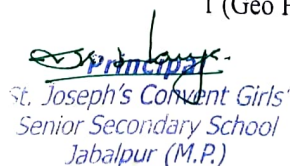 1 (Geo
Principal
St. Joseph's Convent Girls'
Senior Secondary School
Jabalpur (M.P.)